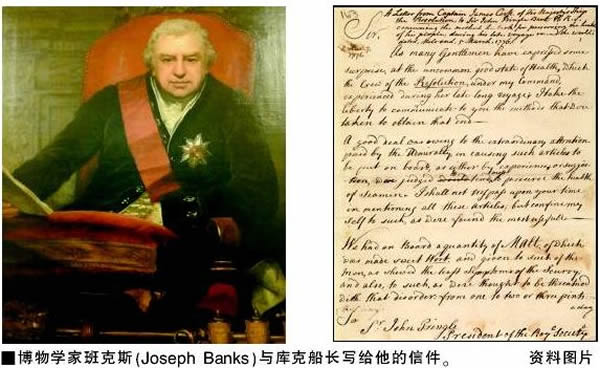 A Letter from Captain James Cook, of his Majesty's Ship
the Resolution to Sir John Pringle Bart. P.R.S.
concerning the method he took for preserving the health
of the people, during his late voyage round the world
dated, Mile end, 5 March. 1776.
Sir,
1776.
As many Gentlemen have expressed some
surprise, at the uncommon good state of Health, which
the Crew of the Resolution, under my Command,
experienced during her late long voyage; I take the
liberty to communicate to you the methods that were
taken to obtain that end—
A good deal was owing to the extraordinary attention
payed by the Admiralty, in causing such articles to
be put on board, as either by experience,
tion, were judged to preserve the health
of Seamen. I shall not trespass upon your time
in mentioning all these articles, but confine my
self to such, as were found the most usefull—
We had on Board a quantity of Malt, of which
was made sweet Wort, and given to such of the
men, as shewed the least symptoms of the Scurvy;
and also, to such, as were thought to be threatned
with that disorder, from one to two or three pints
a day
To
Sr. John Pringle
President of the Royl. Society
■博物学家班克斯(Joseph Banks)与库克船长写给他的信件。 资料图片